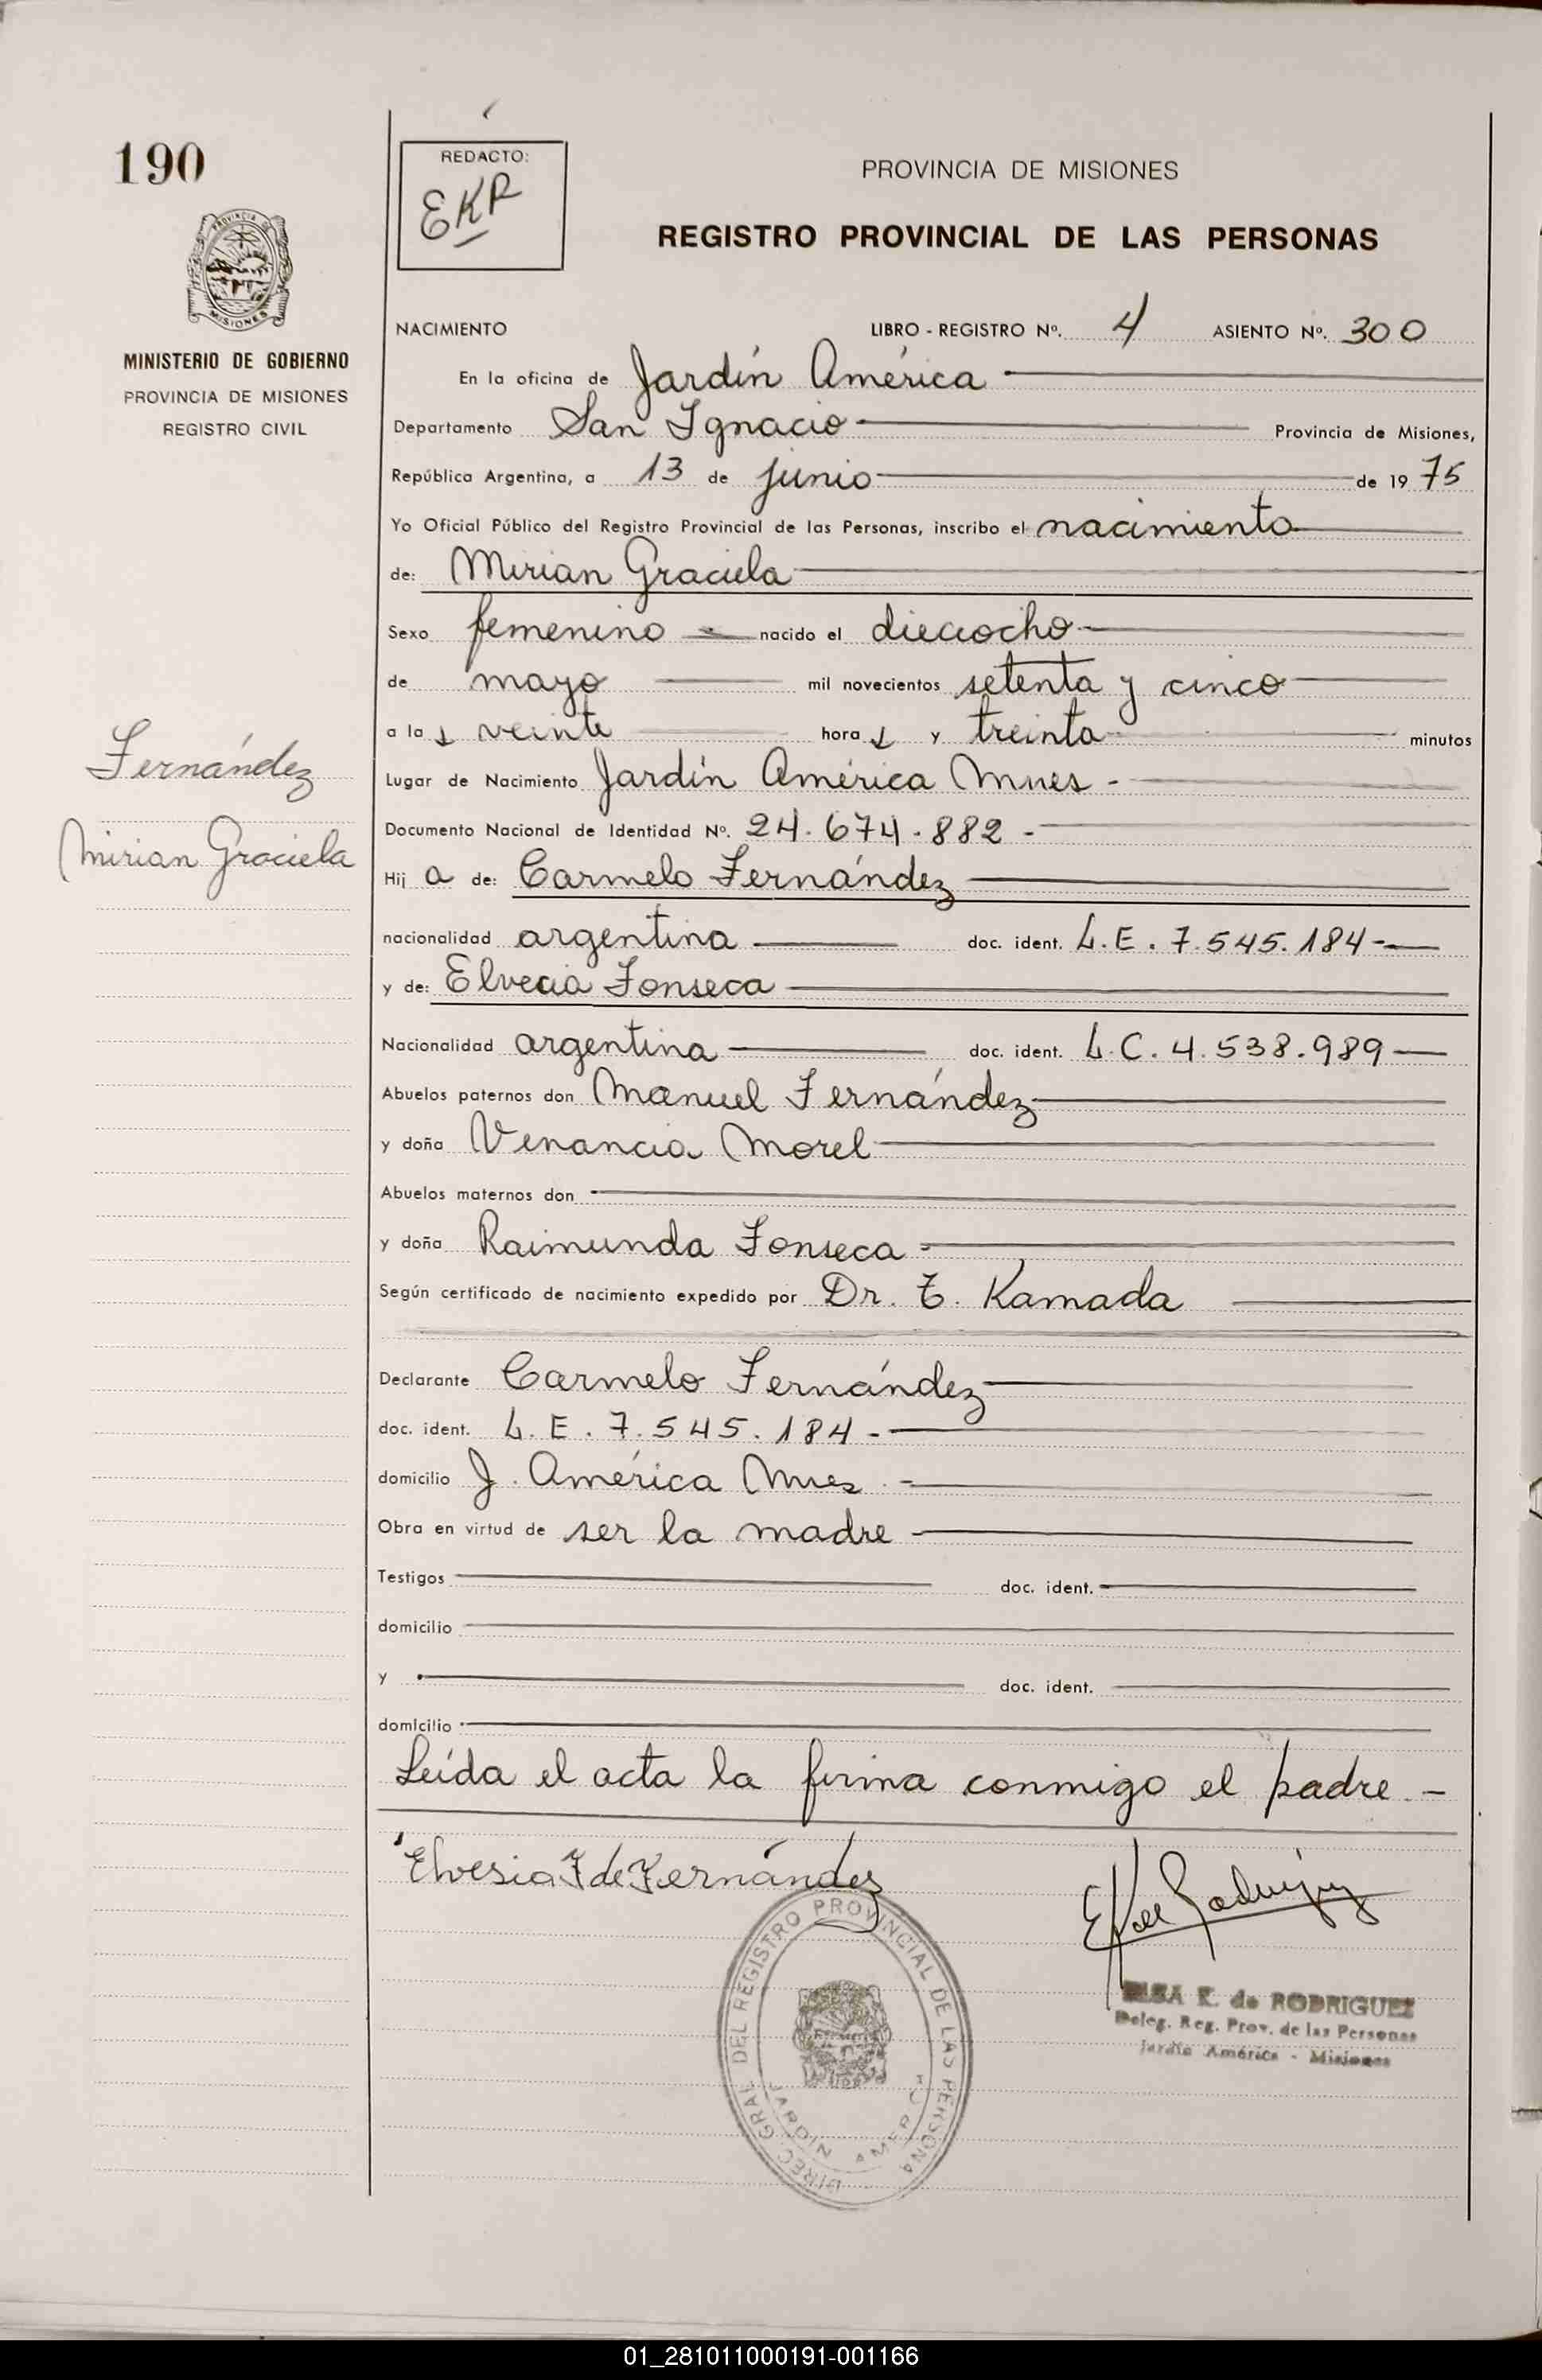 190
REDACTO:
EKR
PROVINCIA DE MISIONES
REGISTRO PROVINCIAL DE LAS PERSONAS
MISIONES
MINISTERIO DE GOBIERNO
PROVINCIA DE MISIONES
REGISTRO CIVIL
NACIMIENTO LIBRO - REGISTRO Nº. 4 ASIENTO Nº. 300
En la oficina de Jardín América
Departamento San Ignacio Provincia de Misiones,
República Argentina, a 13 de junio de 1975
Yo Oficial Público del Registro Provincial de las Personas, inscribo el nacimiento
de: Mirian Graciela
Sexo femenino nacido el dieciocho
de mayo mil novecientos setenta y cinco
a las veinte horas y treinta minutos
Fernández
Mirian Graciela
Lugar de Nacimiento Jardín América Mnes -
Documento Nacional de Identidad Nº. 24.674.882 -
Hija de: Carmelo Fernández
nacionalidad argentina doc. ident. L.E. 7.545.184-
y de: Elvecia Fonseca
Nacionalidad argentina doc. ident. L.C. 4.538.989
Abuelos paternos don Manuel Fernández
y doña Venancia Morel
Abuelos maternos don
y doña Raimunda Fonseca -
Según certificado de nacimiento expedido por Dr. T. Kamada
Declarante Carmelo Fernández
doc. ident. L.E. 7.545.184-
domicilio J. América Mnes -
Obra en virtud de ser la madre
Testigos doc. ident.
domicilio
y doc. ident.
domicilio
Leída el acta la firma conmigo el padre -
Elvesia F de Fernández
DIREC. GRAL DEL REGISTRO PROVINCIAL DE LAS PERSONA
JARDIN AMERICA
ELSA K. de RODRIGUEZ
Deleg. Reg. Prov. de las Personas
Jardín América - Misiones
01_281011000191-001166